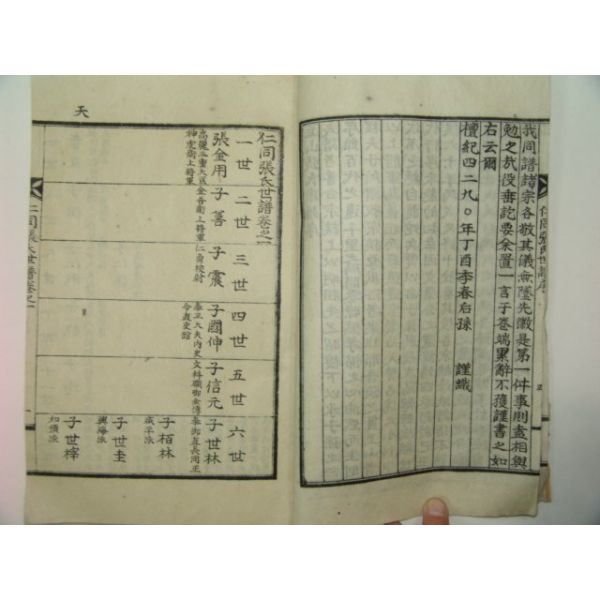 我同譜諸宗各敬其儀無墜先徽是第一件事則盍相與
勉之哉役垂訖要余置一言于卷端累辭不獲謹書之如
右云爾
檀紀四二九〇年丁酉季春后孫 謹識
仁同張氏世譜序
天
仁同張氏世譜卷之一
一世 二世 三世 四世 五世 六世
張金用 子善 子震 子國伸 子信元 子世林
高麗三重大匡
神虎衛上將軍
金吾衛上將軍
仁勇校尉
子栢林
子世圭
子世梓
仁同張氏世譜卷之一
一